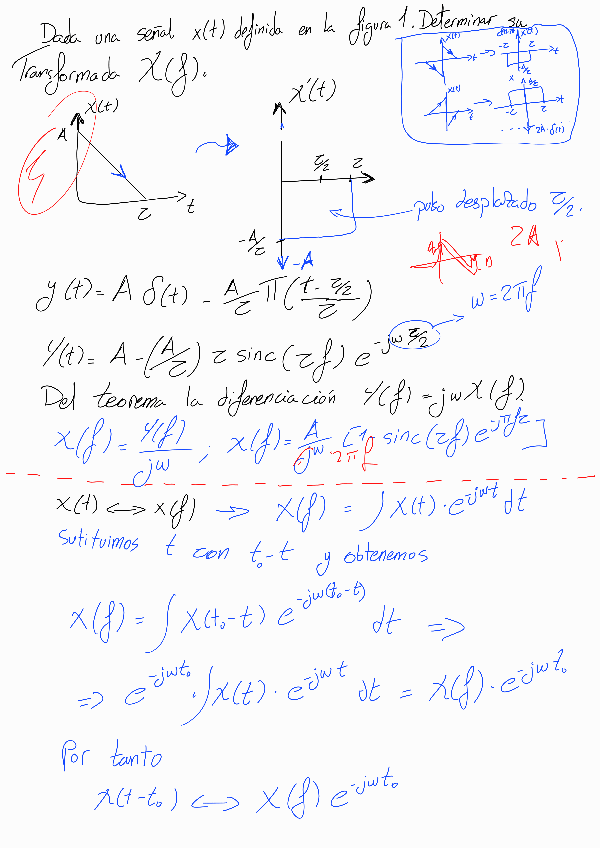 Dada una señal x(t) definida en la figura 1. Determinar su
Transformada X(f).
x(t)
A
τ
t
x'(t)
τ/2
τ
-A/τ
-A
pulso desplazado τ/2.
2A
y(t) = A δ(t) - A/τ Π((t - τ/2)/τ)
ω = 2πf
Y(t) = A - (A/τ) τ sinc(τf) e^{-jω τ/2}
Del teorema la diferenciación Y(f) = jω X(f).
X(f) = Y(f)/jω ; X(f) = A/jω [1 sinc(τf) e^{-jπfτ}]
2πf
x(t) ⟷ x(f) → X(f) = ∫ X(t) · e^{-jωt} dt
Sutituimos t con t₀-t y obtenemos
X(f) = ∫ X(t₀-t) e^{-jω(t₀-t)} dt ⇒
⇒ e^{-jωt₀} · ∫ x(t) · e^{-jωt} dt = X(f) · e^{-jωt₀}
Por tanto
x(t-t₀) ⟷ X(f) e^{-jωt₀}